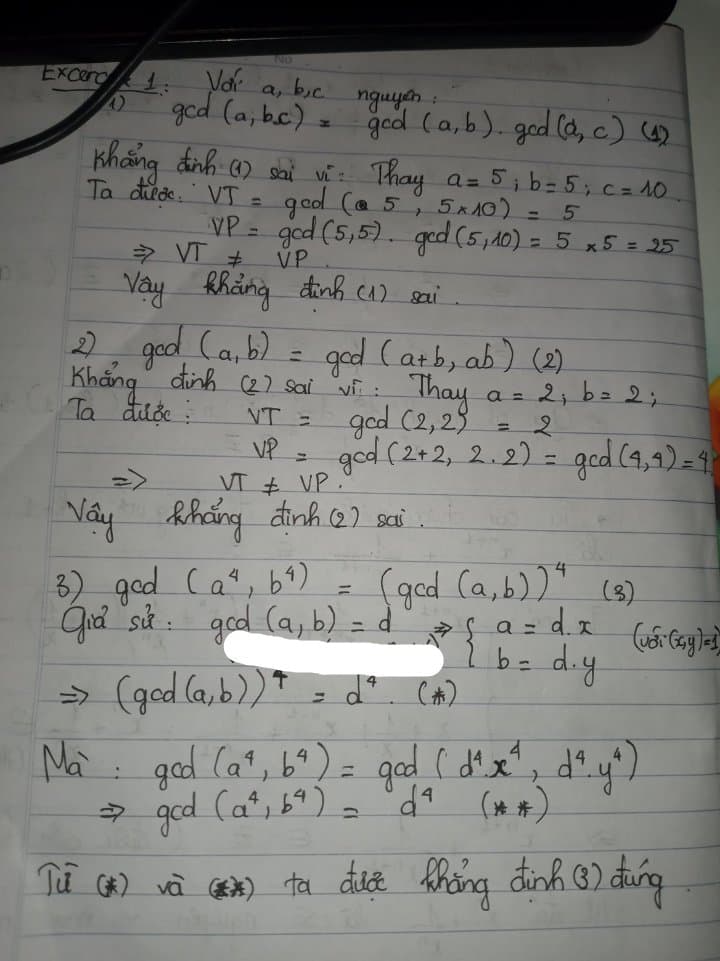 Excercise 1: Với a, b, c nguyên:
1) gcd (a, b.c) = gcd (a, b) . gcd (a, c) (1)
Khẳng định (1) sai vì: Thay a = 5 ; b = 5 ; c = 10.
Ta được: VT = gcd ( 5 , 5×10) = 5
VP = gcd (5,5). gcd (5,10) = 5 × 5 = 25
=> VT ≠ VP.
Vậy khẳng định (1) sai.
2) gcd (a, b) = gcd (a+b, ab) (2)
Khẳng định (2) sai vì: Thay a = 2; b = 2;
Ta được: VT = gcd (2,2) = 2
VP = gcd (2+2, 2.2) = gcd (4,4) = 4.
=> VT ≠ VP.
Vậy khẳng định (2) sai.
3) gcd (a⁴, b⁴) = (gcd (a, b))⁴ (3)
Giả sử: gcd (a, b) = d => { a = d.x (với (x,y)=1)
b = d.y
=> (gcd (a, b))⁴ = d⁴. (*)
Mà : gcd (a⁴, b⁴) = gcd ( d⁴.x⁴ , d⁴.y⁴)
=> gcd (a⁴, b⁴) = d⁴ (**)
Từ (*) và (**) ta được khẳng định (3) đúng.